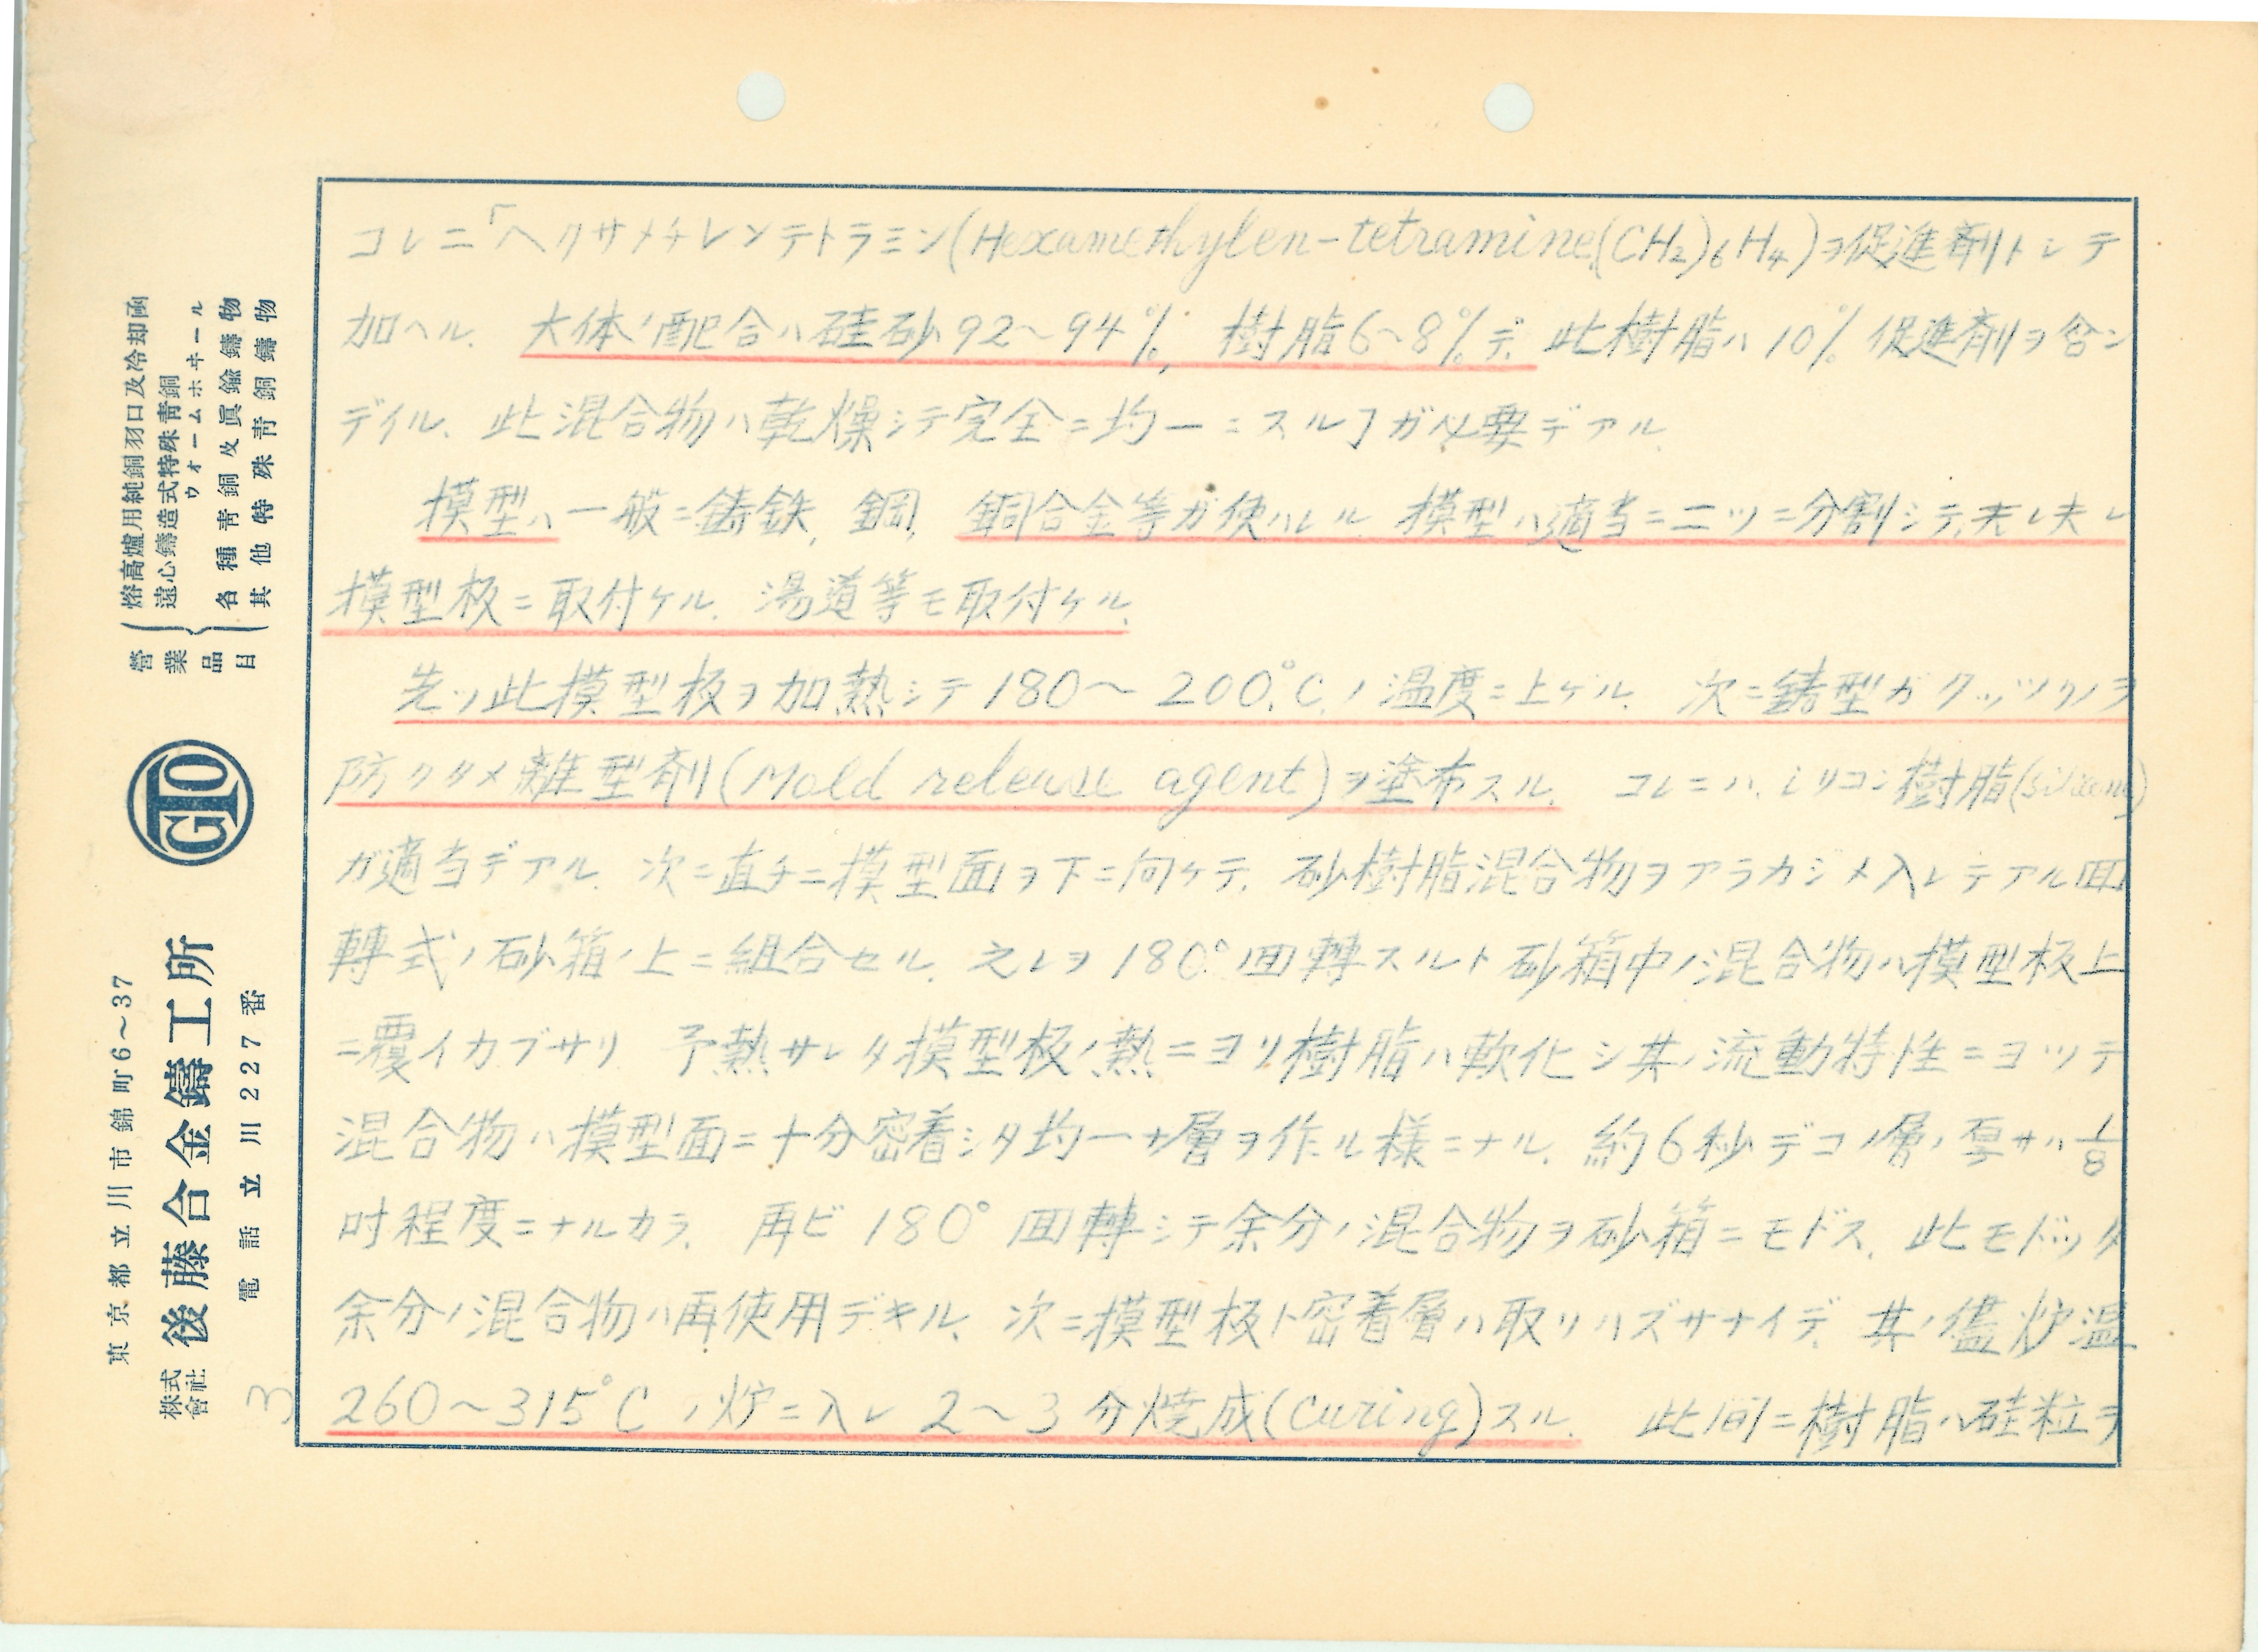 コレニ「ヘクサメチレンテトラミン(Hexamethylen-tetramine(CH₂)₆H₄)ヲ促進剤トシテ
加ヘル、大体ノ配合ハ硅砂92~94%, 樹脂6~8%デ、此樹脂ハ10%促進剤ヲ含ン
デイル、此混合物ハ乾燥シテ完全ニ均一ニスルヿガ必要デアル
模型ハ一般ニ鋳鉄、鋼、銅合金等ガ使ハレル、模型ハ適当ニ二ツニ分割シテ、夫レ夫レ
模型板ニ取付ケル、湯道等モ取付ケル、
先ヅ此模型板ヲ加熱シテ180~200℃ノ温度ニ上ゲル、次ニ鋳型ガクッツクノヲ
防グタメ離型剤(Mold release agent)ヲ塗布スル、コレニハ、シリコン樹脂(silicone)
ガ適当デアル、次ニ直チニ模型面ヲ下ニ向ケテ、砂樹脂混合物ヲアラカジメ入レテアル回
轉式ノ砂箱ノ上ニ組合セル、之レヲ180°回轉スルト砂箱中ノ混合物ハ模型板上
ニ覆イカブサリ 予熱サレタ模型板ノ熱ニヨリ樹脂ハ軟化シ其ノ流動特性ニヨッテ
混合物ハ模型面ニ十分密着シタ均一ナ層ヲ作ル様ニナル、約6秒デコノ層ノ厚サハ1/8
吋程度ニナルカラ、再ビ180°回轉シテ余分ノ混合物ヲ砂箱ニモドス、此モドッタ
余分ノ混合物ハ再使用デキル、次ニ模型板ト密着層ハ取リハズサナイデ、其ノ儘炉温
260~315℃ノ炉ニ入レ2~3分焼成(Curing)スル、此間ニ樹脂ハ硅粒ヲ
3
營業品目
熔高爐用純銅羽口及冷却函
遠心鑄造式特殊靑銅ウォームホヰール
各種靑銅及眞鍮鑄物
其他特殊靑銅鑄物
GTO
東京都立川市錦町6~37
株式會社 後藤合金鑄工所
電話立川227番